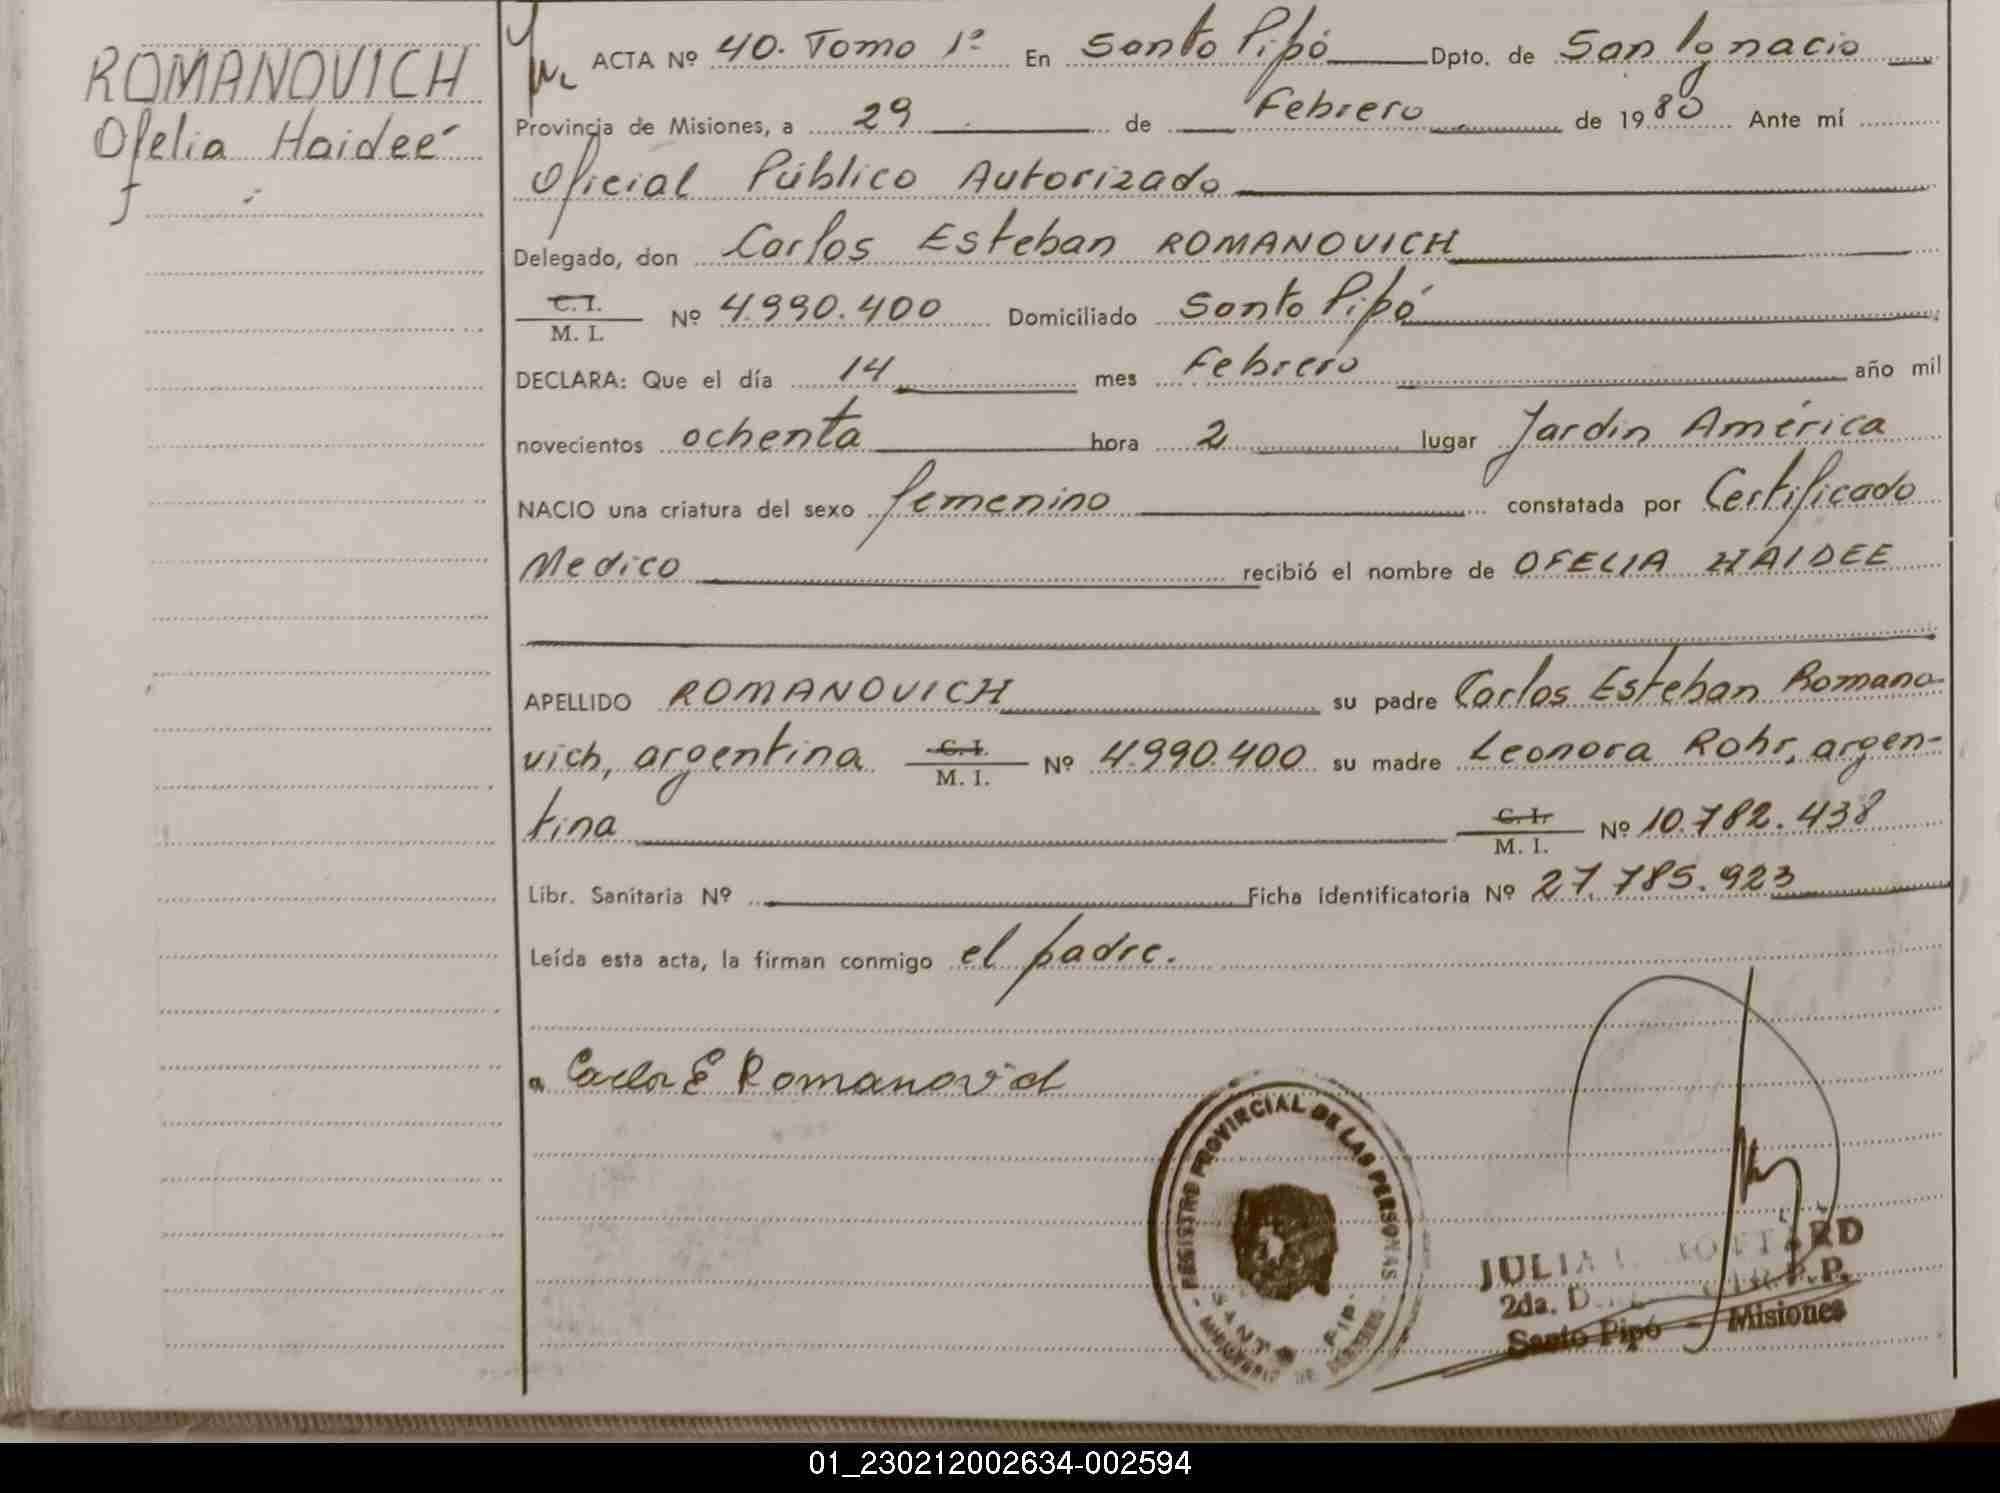 ROMANOVICH
Ofelia Haideé
ACTA Nº 40. Tomo 1º En Santo Pipó Dpto. de San Ignacio
Provincia de Misiones, a 29 de Febrero de 1980 Ante mí
Oficial Público Autorizado
Delegado, don Carlos Esteban ROMANOVICH
C. I.
M. I. Nº 4.990.400 Domiciliado Santo Pipó
DECLARA: Que el día 14 mes Febrero año mil
novecientos ochenta hora 2 lugar Jardín América
NACIO una criatura del sexo femenino constatada por Certificado
Medico recibió el nombre de OFELIA HAIDEE
APELLIDO ROMANOVICH su padre Carlos Esteban Romano-
vich, argentina C. I.
M. I. Nº 4.990.400 su madre Leonora Rohr, argen-
tina C. I.
M. I. Nº 10.782.438
Libr. Sanitaria Nº Ficha identificatoria Nº 27.785.923
Leída esta acta, la firman conmigo el padre.
Carlos E Romanovich
REGISTRO PROVINCIAL DE LAS PERSONAS
SANTO PIPO
JULIA
2da.
Santo Pipó - Misiones
01_230212002634-002594